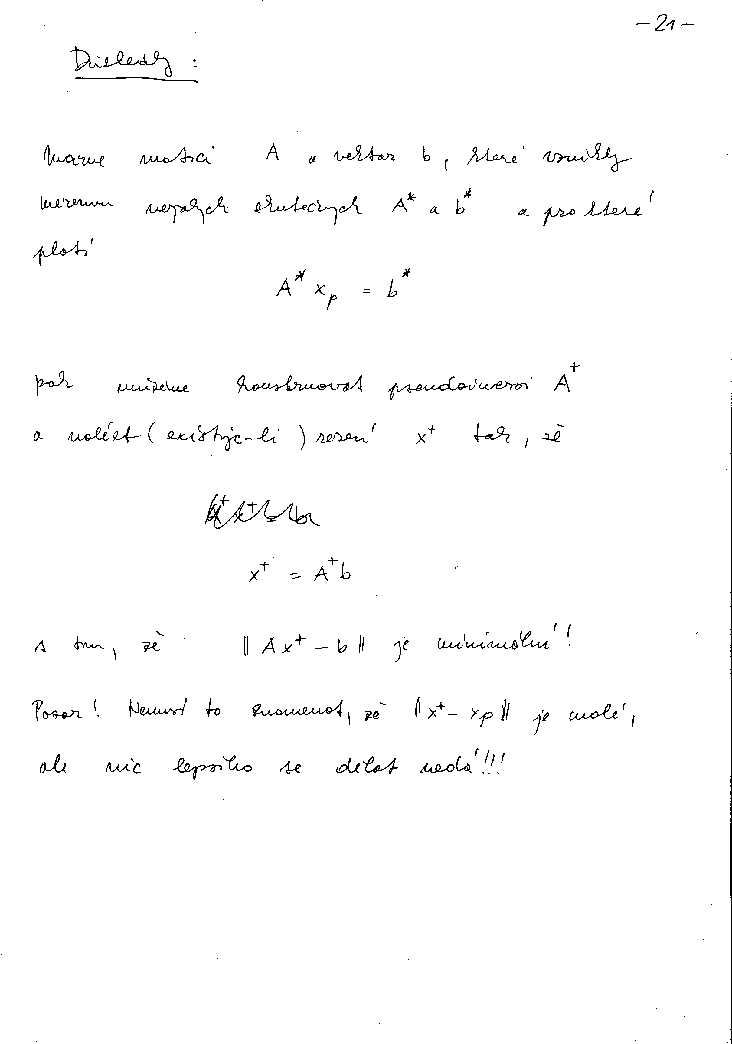 - 21 -
Důsledky :
Máme matici A a vektor b, které vznikly
měřením nějakých skutečných A* a b* a pro které
platí
A* x_p = b*
pak můžeme konstruovat pseudoinverzi A⁺
a nalézt (existuje-li) řešení x⁺ tak, že
x⁺ = A⁺b
s tím, že ‖Ax⁺ - b‖ je minimální!
Pozor! Nemusí to znamenat, že ‖x⁺ - x_p‖ je malé,
ale nic lepšího se dělat nedá!!!